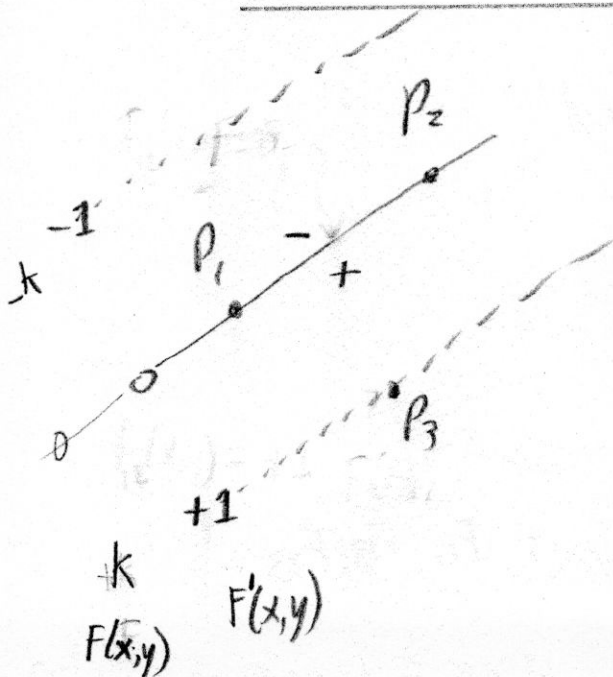 P₂
-1
-k
P₁
-
+
0
0
P₃
+1
+k
F'(x,y)
F(x,y)